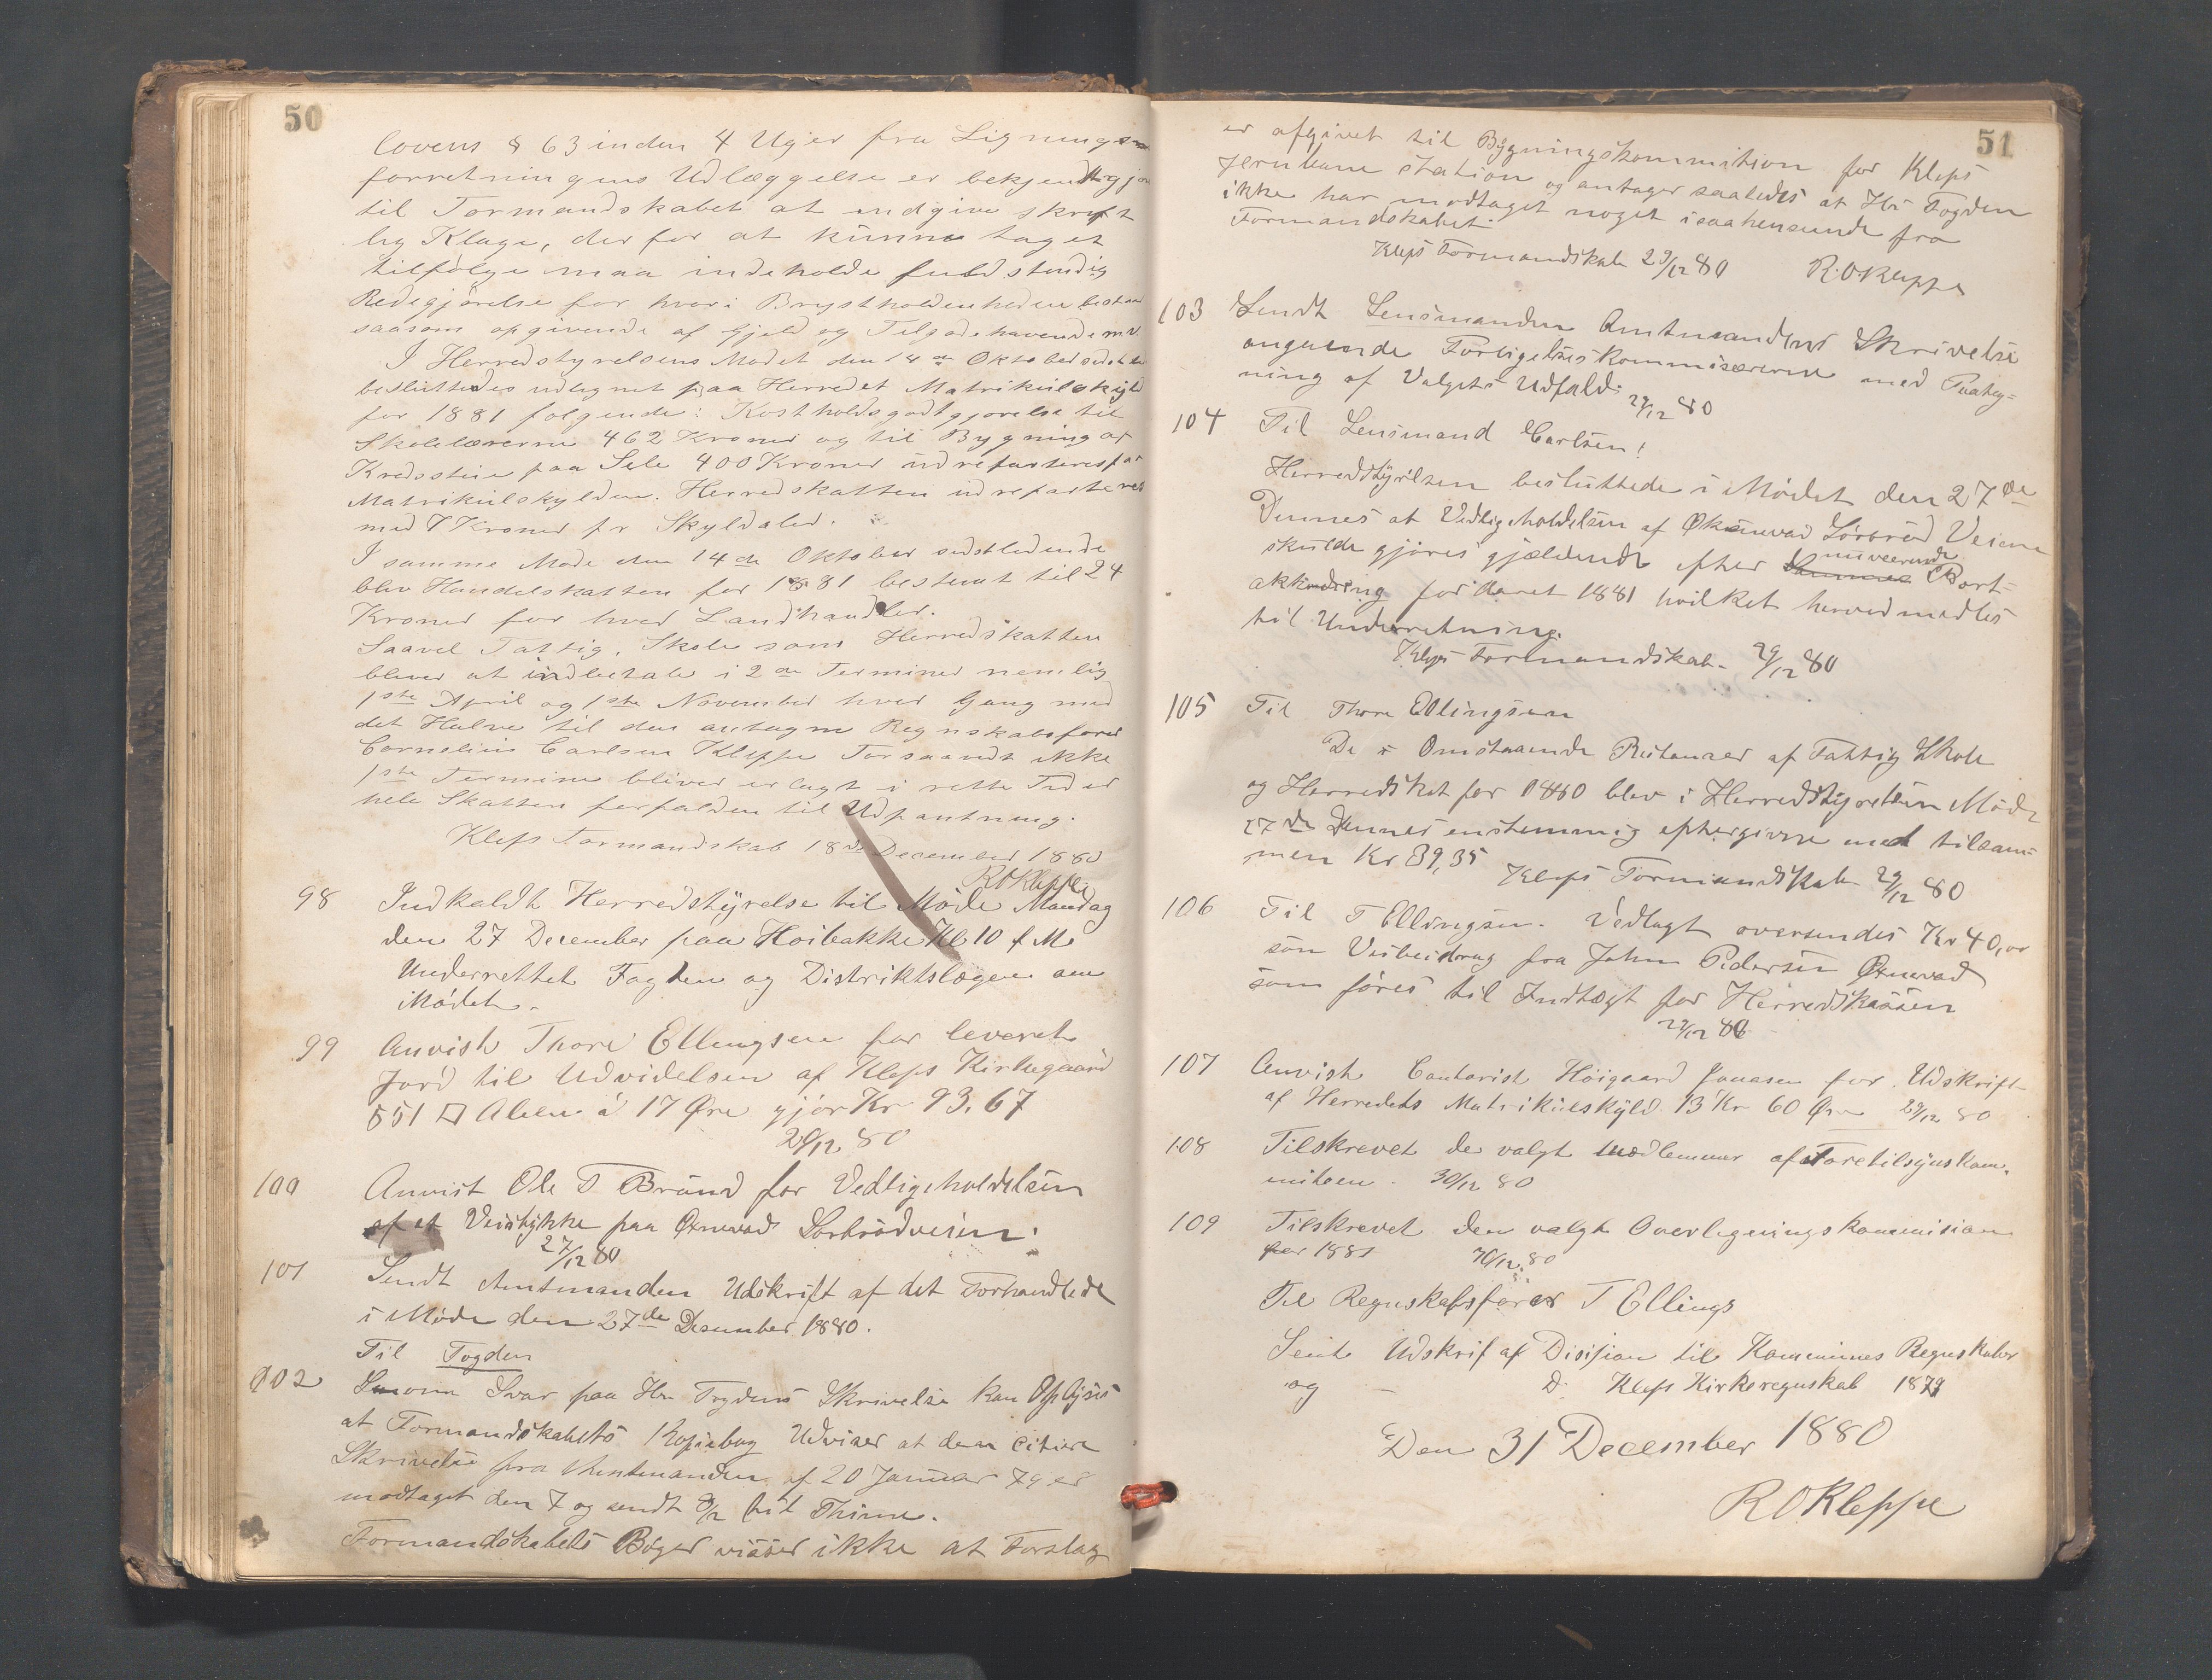 50
lovens § 63 inden 4 Uger fra Lignings
forretningens Udlæggelse er bekjendtgjor
til Formandskabet at indgive skrift
lig Klage, der for at kunne taget
tilfølge maa indeholde fuldstendig
Redegjørelse for hvori Brystholdenheden bestaar
saasom opgivende af Gjeld og Tilgodehavende m.v
I Herredstyrelsens Mødet den 14de Oktober sidstl
besluttedes udlignet paa Herredet Matrikulskyld
for 1881 følgende: Kostholdsgodtgjørelse til
Skolelærerne 462 Kroner og til Bygning af
Kredsstue paa Sele 400 Kroner udrepasteres paa
Matrikulskylden. Herredskatten udrepasteres
med 7 Kroner pr Skyldaler.
I samme Møde den 14de Oktober sidstledende
blev Handelskatten for 1881 bestemt til 24
Kroner for hver Landhandler.
Saavel Fattig, Skole som Herredskatten
bliver at indbetale i 2de Terminer nemlig
1ste April og 1ste November hver Gang med
det Halve til den antagne Regnskabsfører
Cornelius Carlsen Kleppe Forsaavidt ikke
1ste Termine bliver erlagt i rette Tid er
hele Skatten forfalden til Udpantning.
Kleps Formandskab 18de December 1880
R O Kleppe
98 Indkaldt Herredstyrelse til Møde Mandag
den 27 December paa Hoibakke Kl 10 f M.
Underrettet Fogden og Distriktslægen om
Mødet.
99 Anvist Thore Ellingsen for leveret
Jord til Udvidelsen af Kleps Kirkegaard
551 □ Alen á 17 Øre gjør Kr 93.67
29/12 80
100 Anvist Ole T Braud for Vedligeholdelsen
af et Veistykke paa Ørnevad Sørbrødveien.
27/12 80
101 Sendt Amtmanden Udskrift af det Forhandlede
i Møde den 27de Desember 1880.
Til Fogden
102 Som Svar paa Hr Fogdens Skrivelse kan Oplyses
at Formandskabets Kopiebog Udviser at den citiere
Skrivelse fra Amtmanden af 20 Januar 79 er
modtaget den 7 og sendt 8/2 til Thime.
Formandskabets Bøger visser ikke at Forslag
51
er afgivet til Bygningskommition for Kleps
Jernbane station og antager saaledes at Hr Fogden
ikke har modtaget noget i saahenseende fra
Formandskabet.
Kleps Formandskab 29/12 80 R.O.Kleppe
103 Sendt Lensmanden Amtmandens Skrivelse
angaaende Forligelseskommisærerne med Paateg=
ning af Valgets Udfald. 29/12 80
104 Til Lensmand Carlsen!
Herredstyrelsen besluttede i Mødet den 27de
Dennes at Vedligeholdelsen af Øksnevad Sørbrød Veiene
skulde gjøres gjældende efter nuveærende Bort=
akkodring for Aaret 1881 hvilket herved medles
til Underretning.
Kleps Formandskab. 29/12 80
105 Til Thore Ellingsen
De i Omstaaende Restanser af Fattig Skole
og Herredskat for 1880 blev i Herredstyrelsen Møde
27de Dennes enstemmig eftergivne med tilsam=
men Kr 89,35 Kleps Formandskab 29/12 80
106 Til T Ellingsen. Vedlagt oversendes Kr 40,00
som Veibidrag fra John Pedersen Ørnevad
som føres til Indtægt for Herredskassen
29/12 80
107 Anvist Contorist Høigaard Jonasen for Udskrift
af Herredets Matrikulskyld 13 Kr 60 Øre 29/12 80
108 Tilskrevet de valgt Medlemmer af Faretilsynskom.
miteen. 30/12 80
109 Tilskrevet den valgte Overligningskommision
for 1881 30/12 80
Til Regnskabsfører T Ellings
Sent Udskrif af Disisian til Kommunes Regnskaber
og — D. Kleps Kirkeregnskab 1879
Den 31 December 1880
R O Kleppe